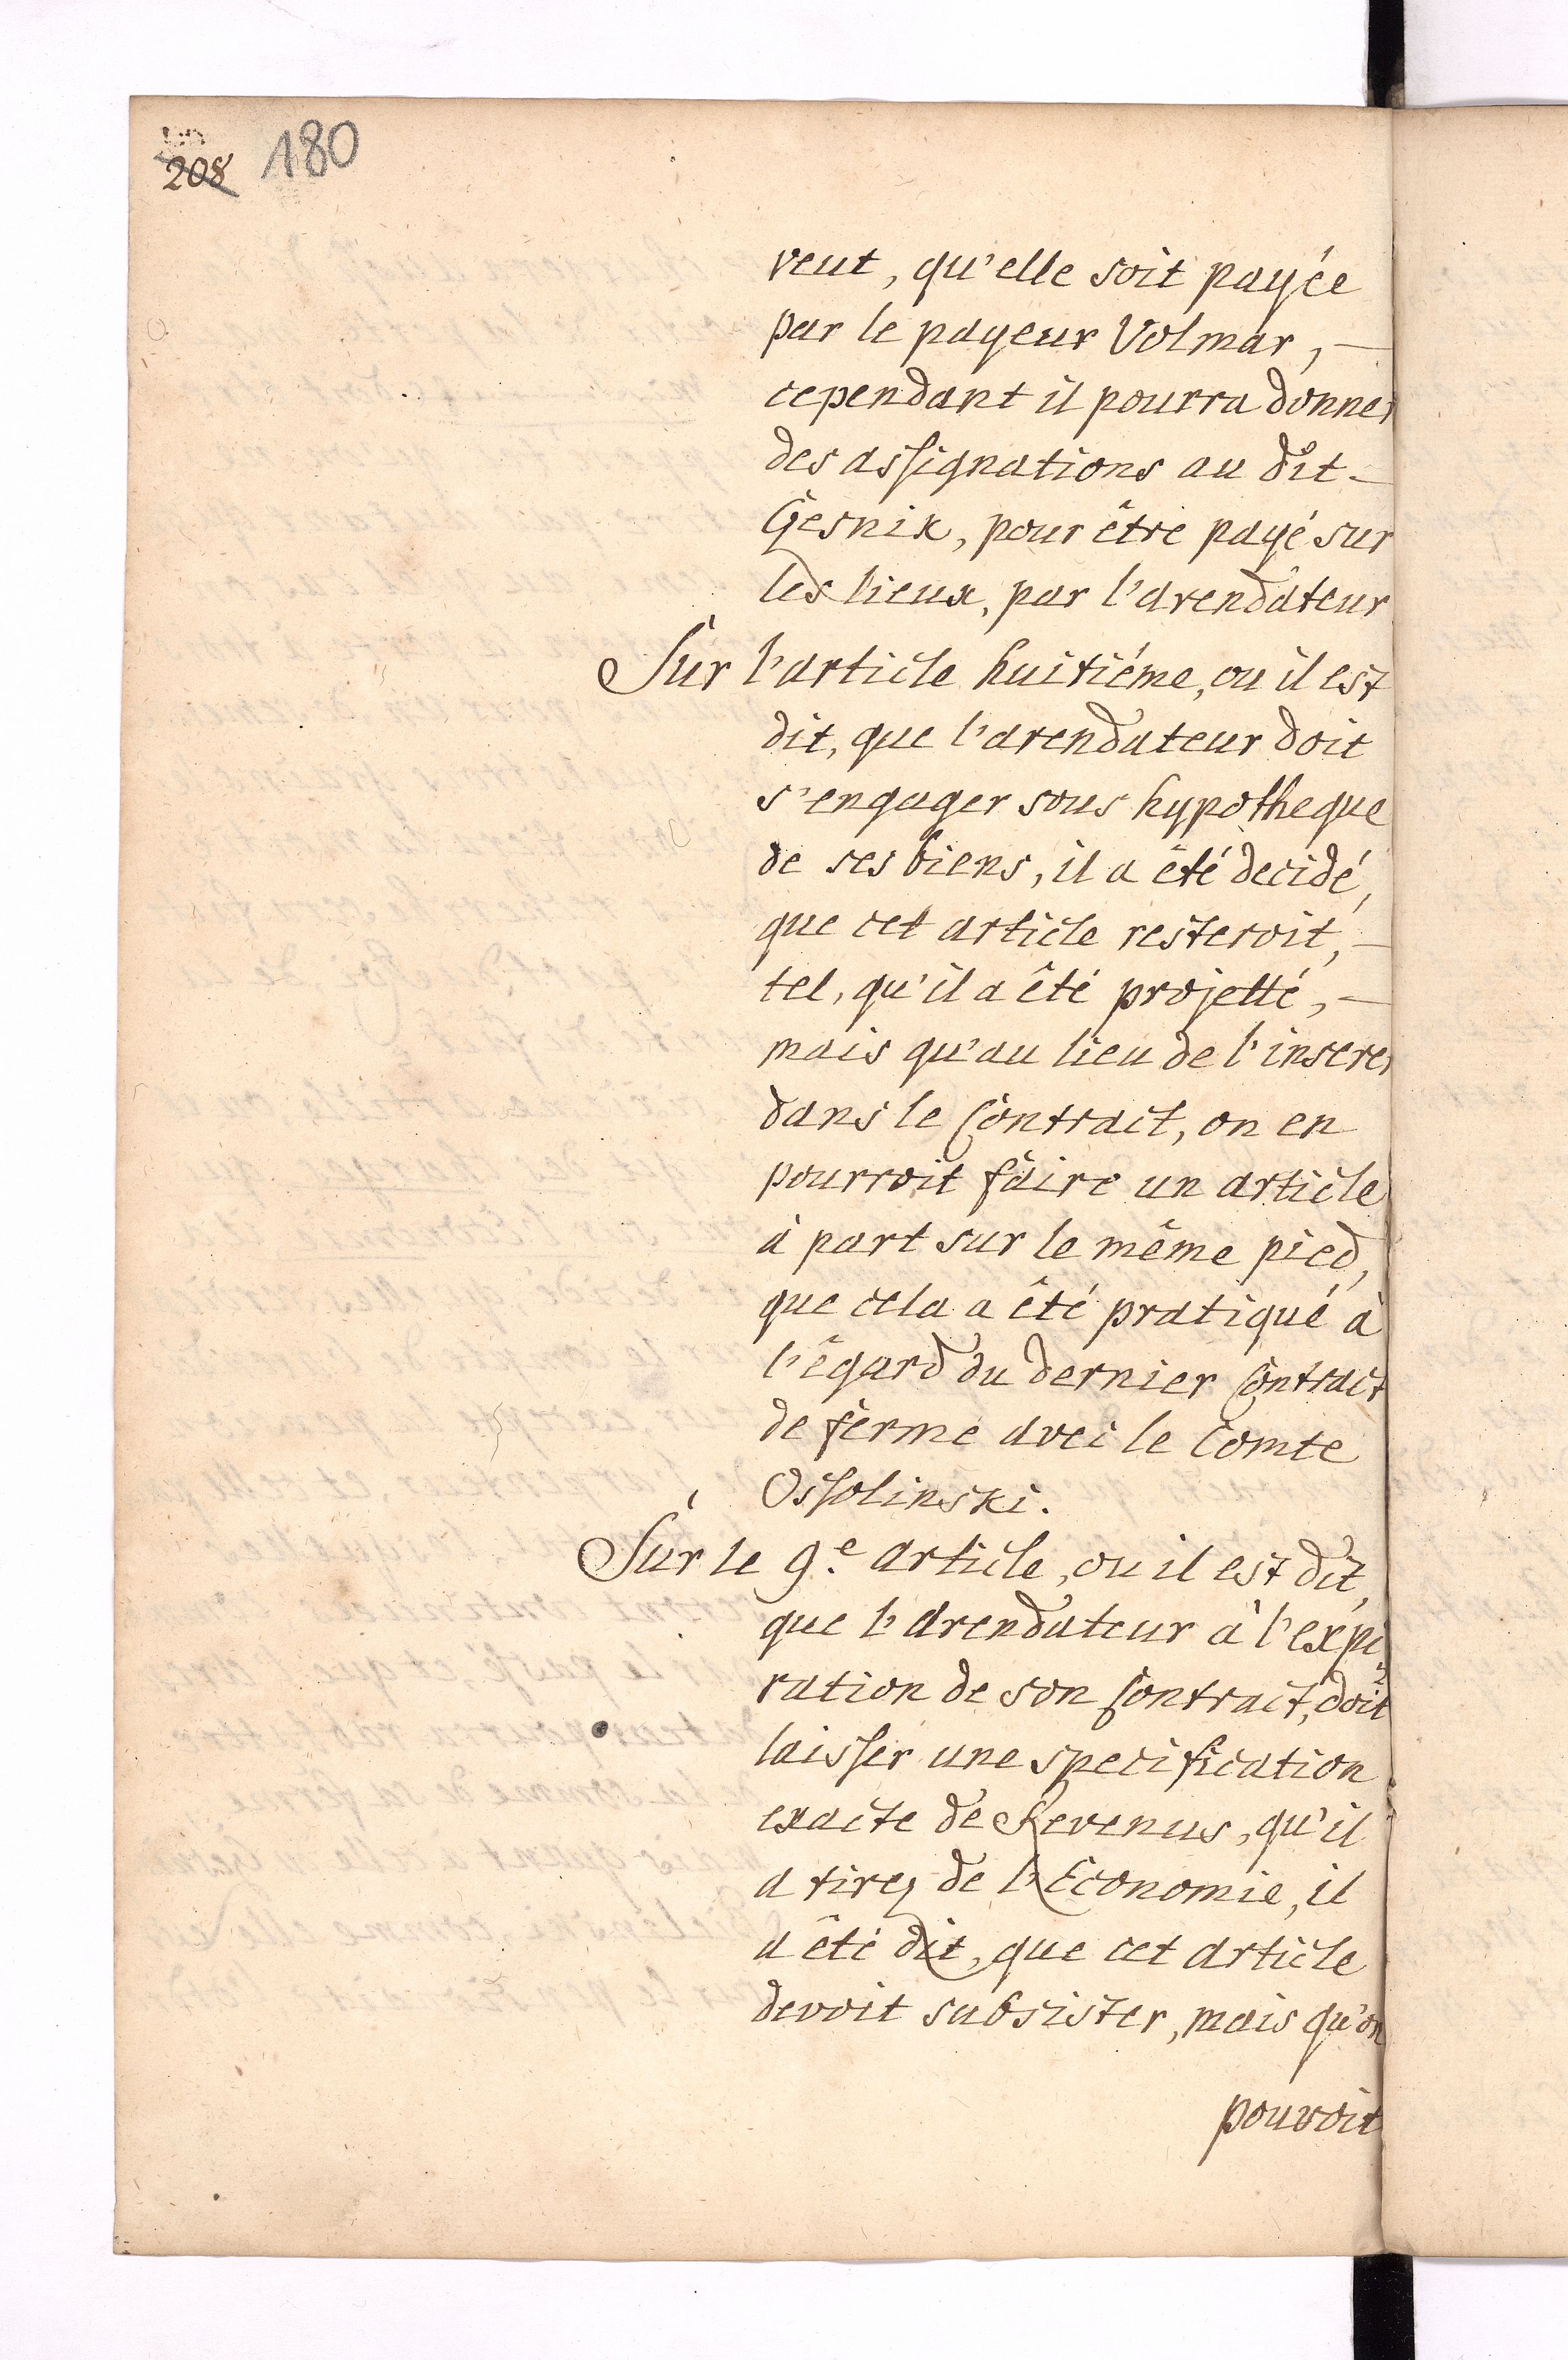 208 180
veut, qu'elle soit payée
par le payeur Volmar, —
cependant il pourra donner
des assignations au dit —
Gesnik, pour être payé sur
les lieux, par l'arendateur
Sur l'article huitiéme, ou il est
dit, que l'arendateur doit
s'engager sous hypotheque
de ses biens, il a êté decidé,
que cet article resteroit, —
tel, qu'il a êté projetté, —
mais qu'au lieu de l'inserer
dans le Contract, on en
pourroit faire un article
à part sur le même pied,
que cela a êté pratiqué à
l'êgard du dernier Contract
de ferme avec le Comte
Ossolinski.
Sur le 9.e article, ou il est dit,
que l'arendateur à l'expi-
ration de son Contract, doit
laisser une specification
exacte de Revenus, qu'il
a tirez de l'Economie, il
a êté dit, que cet article
devoit subsister, mais qu'on
pouvoit